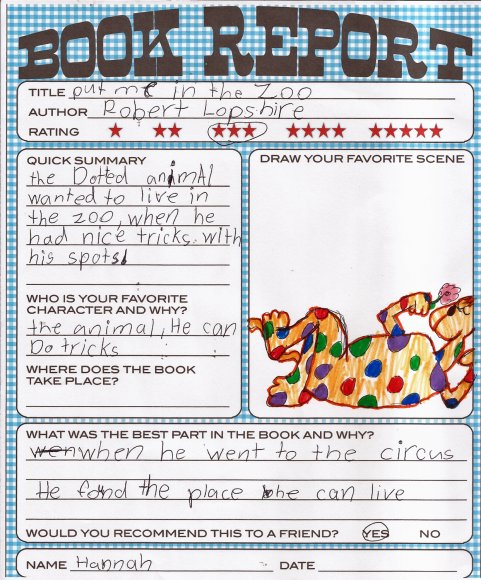 BOOK REPORT
TITLE put me in the Zoo
AUTHOR Robert Lopshire
RATING ★ ★★ ★★★ ★★★★ ★★★★★
QUICK SUMMARY
the Dotted animAl
wanted to live in
the zoo, when he
had nice tricks. with
his spots.
WHO IS YOUR FAVORITE
CHARACTER AND WHY?
the animal, He can
Do tricks
WHERE DOES THE BOOK
TAKE PLACE?
DRAW YOUR FAVORITE SCENE
WHAT WAS THE BEST PART IN THE BOOK AND WHY?
wen when he went to the circus
He fond the place he can live
WOULD YOU RECOMMEND THIS TO A FRIEND? YES NO
NAME Hannah DATE